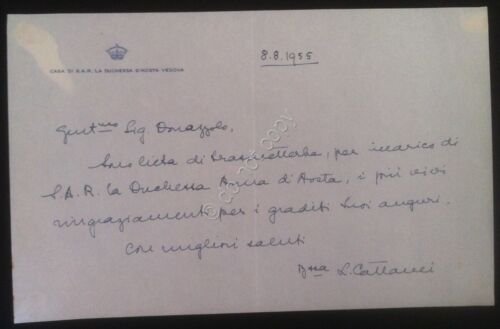 CASA DI S.A.R. LA DUCHESSA D'AOSTA VEDOVA
8.8.1955
Gent.mo Sig. Donazzolo,
Sono lieta di trasmetterLe, per incarico di
S.A.R. la Duchessa Anna d'Aosta, i più vivi
ringraziamenti per i graditi Suoi auguri.
Con migliori saluti
D.ssa L. Cattanei